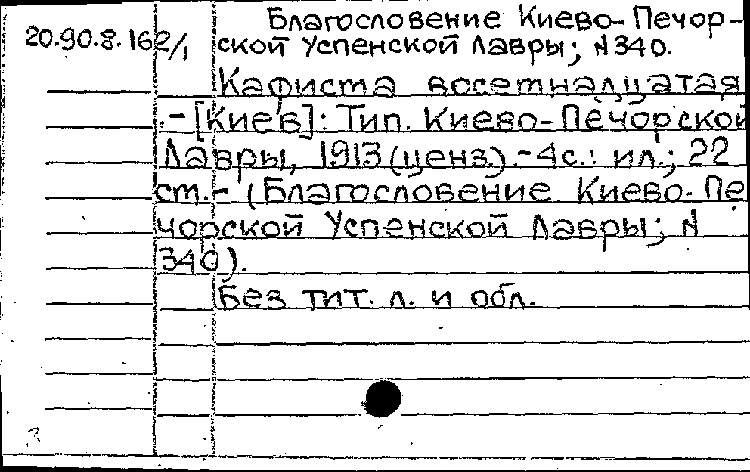 Благословение Киево-Печор-
20.90.8.162/1 ской Успенской Лавры; N340.
Кафиста восетнадцатая
.-[Киев]: Тип. Киево-Печорской
Лавры, 1913(ценз.).-4с.: ил.; 22
ст.- (Благословение Киево-Пе
чорской Успенской Лавры; N
340).
Без тит. л. и обл.